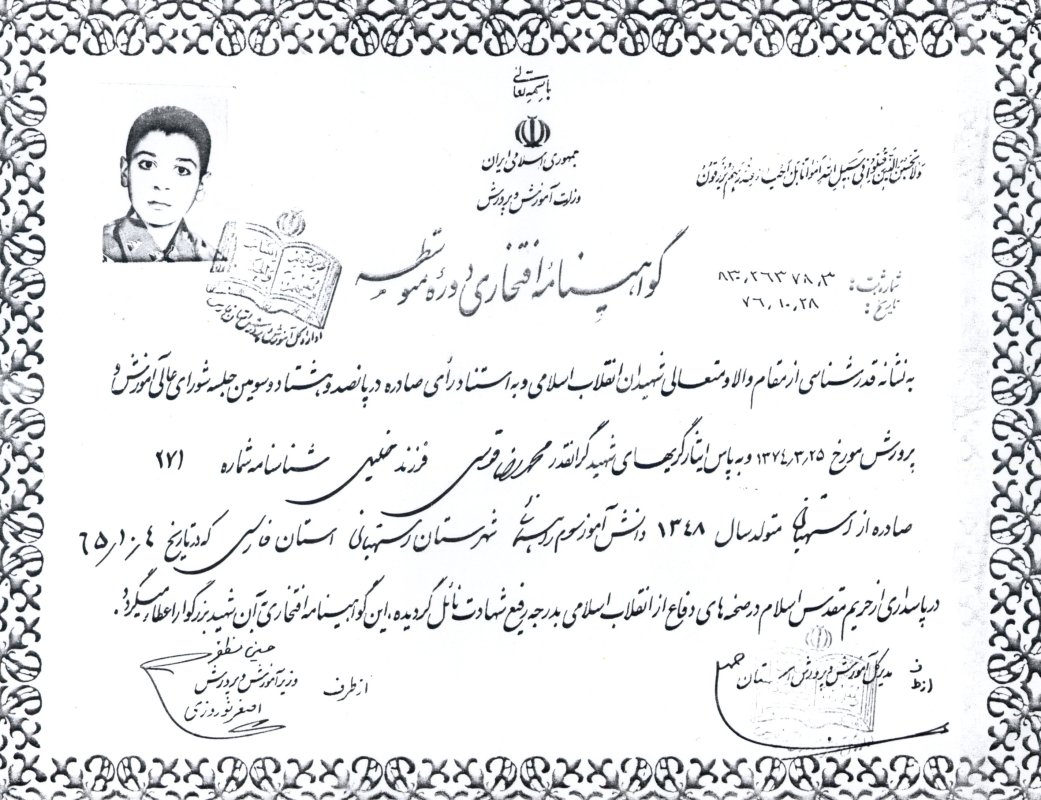 باسمه تعالی
جمهوری اسلامی ایران
وزارت آموزش و پرورش
ولا تحسبن الذین قتلوا فی سبیل الله امواتا بل احیاء عند ربهم یرزقون
گواهینامهٔ افتخاری دوره متوسطه
شماره ثبت:
تاریخ: ۷۶,۱۰,۲۸
به نشانه قدرشناسی از مقام والا و متعالی شهیدان انقلاب اسلامی و به استناد رأی صادره در پانصد و هشتاد و سومین جلسه شورای عالی آموزش و
پرورش مورخ ۱۳۷۴,۳,۲۵ و به پاس ایثارگریهای شهید گرانقدر محمدرضا فرزند خلیل شناسنامه شماره ۲۷۱
صادره از استهبان متولد سال ۱۳۴۸ دانش آموز سوم راهنمائی شهرستان استهبان استان فارس که در تاریخ ۶۵,۱۰,۴
در پاسداری از حریم مقدس اسلام در صحنه های دفاع از انقلاب اسلامی بدرجه رفیع شهادت نائل گردیده، این گواهینامه افتخاری به آن شهید بزرگوار اعطاء میگردد.
از طرف مدیر کل آموزش و پرورش استان
از طرف
حسین مظفر
وزیر آموزش و پرورش
اصغر نوروزی